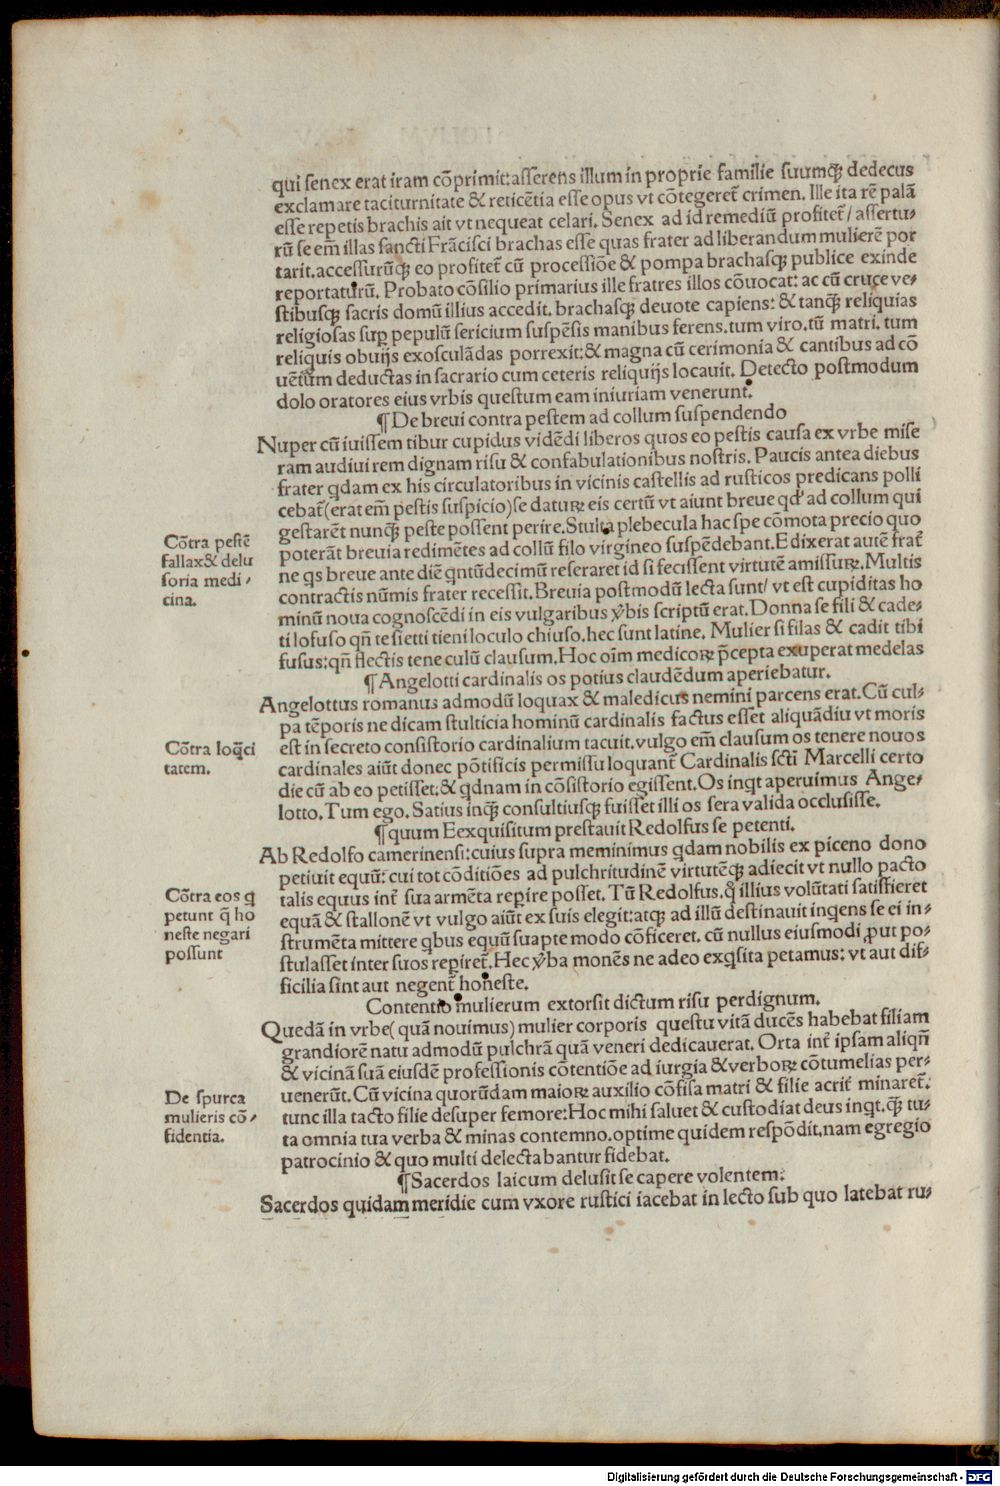 qui senex erat iram cõprimit:asserens illum in proprie familie suumq̃ꝫ dedecus
exclamare taciturnitate & reticẽtia esse opus vt cõtegeret̃ crimen. Ille ita rẽ palã
esse repetis brachis ait vt nequeat celari. Senex ad id remediũ profitet̃/ assertu⸗
rũ se em̃ illas sancti Frãcisci brachas esse quas frater ad liberandum mulierẽ por
tarit.accessurũq̃ꝫ eo profitet̃ cũ processiõe & pompa brachasq̃ꝫ publice exinde
reportaturũ. Probato cõsilio primarius ille fratres illos cõuocat: ac cũ cruce ve⸗
stibusq̃ꝫ sacris domũ illius accedit. brachasq̃ꝫ deuote capiens: & tanq̃ꝫ reliquias
religiosas suꝑ pepulũ sericium suspẽsis manibus ferens.tum viro.tũ matri. tum
reliquis obuijs exosculãdas porrexit:& magna cũ cerimonia & cantibus ad cõ
uẽtum deductas in sacrario cum ceteris reliquijs locauit. Detecto postmodum
dolo oratores eius vrbis questum eam iniuriam venerunt.
¶De breui contra pestem ad collum suspendendo
Nuper cũ iuissem tibur cupidus vidẽdi liberos quos eo pestis causa ex vrbe mise
ram audiui rem dignam risu & confabulationibus nostris. Paucis antea diebus
frater qdam ex his circulatoribus in vicinis castellis ad rusticos predicans polli
cebat̃(erat em̃ pestis suspicio)se daturꝝ eis certũ vt aiunt breue qd' ad collum qui
gestarẽt nunq̃ꝫ peste possent perire.Stulta plebecula hac spe cõmota precio quo
poterãt breuia redimẽtes ad collũ filo virgineo suspẽdebant.Edixerat autẽ frat̃
ne qs breue ante diẽ qntũdecimũ reseraret id si fecissent virtutẽ amissurꝝ. Multis
contractis nũmis frater recessit. Breuia postmodũ lecta sunt/ vt est cupiditas ho
minũ noua cognoscẽdi in eis vulgaribus v̾bis scriptũ erat. Donna se fili & cade⸗
ti lo fuso qñ te sietti tieni lo culo chiuso. hec sunt latine. Mulier si filas & cadit tibi
fusus:qñ flectis tene culũ clausum. Hoc oĩm medicoꝝ p̃cepta exuperat medelas
¶Angelotti cardinalis os potius claudẽdum aperiebatur.
Angelottus romanus admodũ loquax & maledicus nemini parcens erat.Cũ cul⸗
pa tẽporis ne dicam stulticia hominũ cardinalis factus esset aliquãdiu vt moris
est in secreto consistorio cardinalium tacuit. vulgo em̃ clausum os tenere nouos
cardinales aiũt donec põtificis permissu loquant̃ Cardinalis scti Marcelli certo
die cũ ab eo petisset.& qdnam in cõsistorio egissent. Os inqt aperuimus Ange⸗
lotto. Tum ego. Satius inq̃ꝫ consultiusq̃ꝫ fuisset illi os sera valida occlusisse.
¶quum Eexquisitum prestauit Redolfus se petenti.
Ab Redolfo camerinensi:cuius supra meminimus qdam nobilis ex piceno dono
petiuit equũ: cui tot cõditiões ad pulchritudinẽ virtutẽq̃ꝫ adiecit vt nullo pacto
talis equus int̃ sua armẽta reꝑire posset. Tũ Redolfus.q̃ illius volũtati satisfieret
equã & stallonẽ vt vulgo aiũt ex suis elegit:atq̃ꝫ ad illũ destinauit inqens se ei in⸗
strumẽta mittere qbus equũ suapte modo cõficeret. cũ nullus eiusmodi ꝓut po⸗
stulasset inter suos reꝑiret̃. Hec v̾ba monẽs ne adeo exqsita petamus: vt aut dif⸗
ficilia sint aut negent̃ honeste.
Contentio mulierum extorsit dictum risu perdignum.
Quedã in vrbe( quã nouimus) mulier corporis questu vitã ducẽs habebat filiam
grandiorẽ natu admodũ pulchrã quã veneri dedicauerat. Orta int̃ ipsam aliqñ
& vicinã suã eiusdẽ professionis cõtentiõe ad iurgia & verboꝝ cõtumelias per⸗
uenerũt. Cũ vicina quorũdam maioꝝ auxilio cõfisa matri & filie acrit̃ minaret̃.
tunc illa tacto filie desuper femore:Hoc mihi saluet & custodiat deus inqt. q̃ꝫ tu⸗
ta omnia tua verba & minas contemno.optime quidem respõdit.nam egregio
patrocinio & quo multi delectabantur fidebat.
¶Sacerdos laicum delusit se capere volentem:
Sacerdos quidam meridie cum vxore rustici iacebat in lecto sub quo latebat ru⸗
Cõtra pestẽ
fallax& delu
soria medi⸗
cina.
Cõtra loq̃ci
tatem.
Cõtra eos q
petunt q̃ ho
neste negari
possunt
De spurca
mulieris cõ⸗
fidentia.
Digitalisierung gefördert durch die Deutsche Forschungsgemeinschaft - DFG